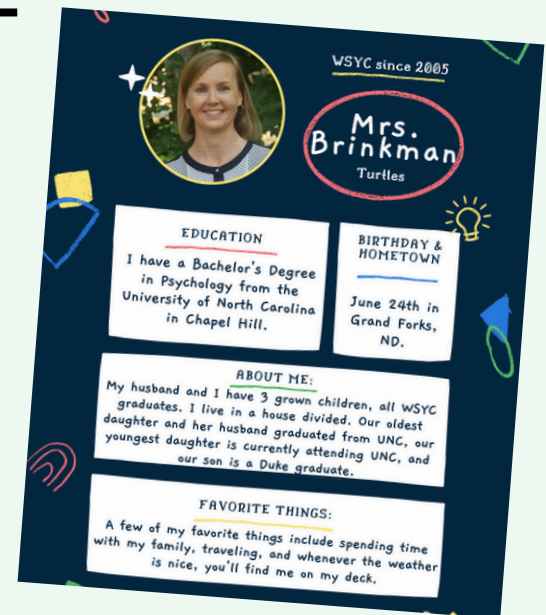 WSYC since 2005
Mrs.
Brinkman
Turtles
EDUCATION
I have a Bachelor's Degree
in Psychology from the
University of North Carolina
in Chapel Hill.
BIRTHDAY &
HOMETOWN
June 24th in
Grand Forks,
ND.
ABOUT ME:
My husband and I have 3 grown children, all WSYC
graduates. I live in a house divided. Our oldest
daughter and her husband graduated from UNC, our
youngest daughter is currently attending UNC, and
our son is a Duke graduate.
FAVORITE THINGS:
A few of my favorite things include spending time
with my family, traveling, and whenever the weather
is nice, you'll find me on my deck.